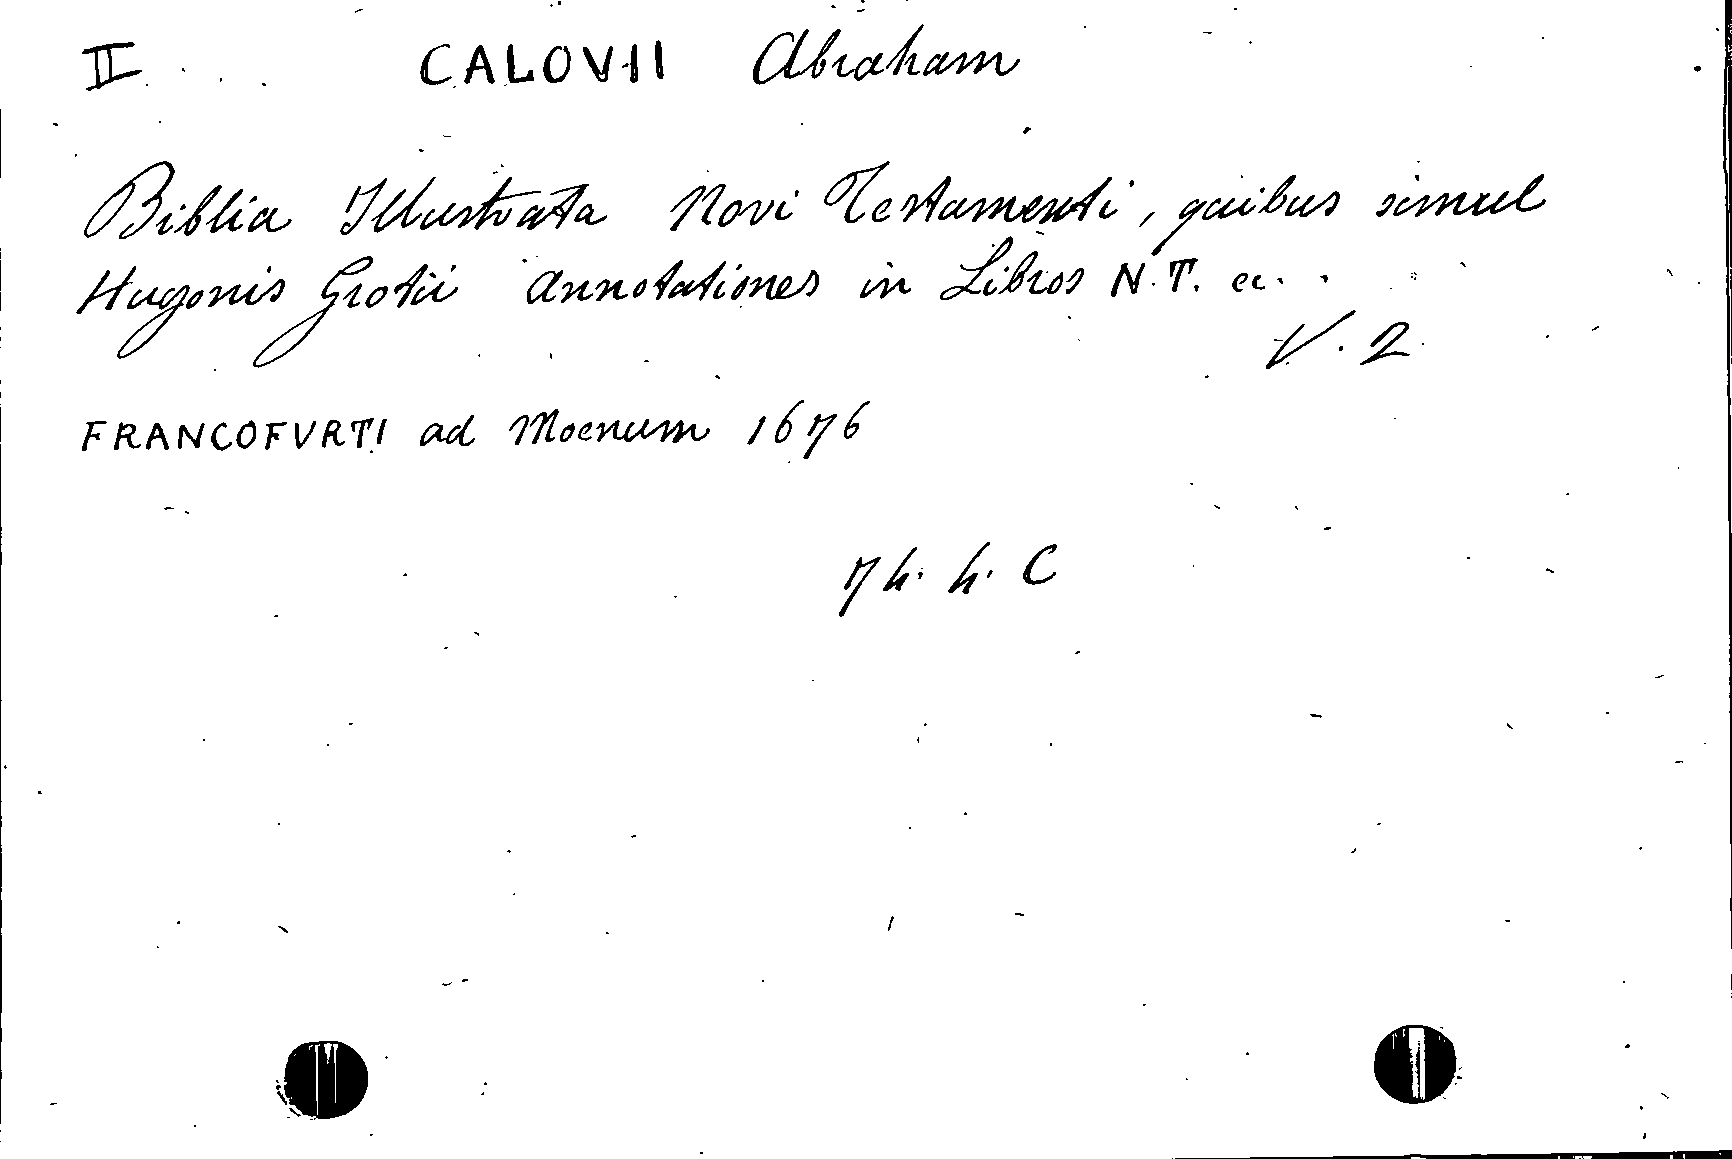 II CALOVII Abraham
Biblia Illustrata Novi Testamenti, quibus simul
Hugonis Grotii Annotationes in Libros N.T. ec..
V. 2
FRANCOFVRTI ad Moenum 1676
7h. h. C